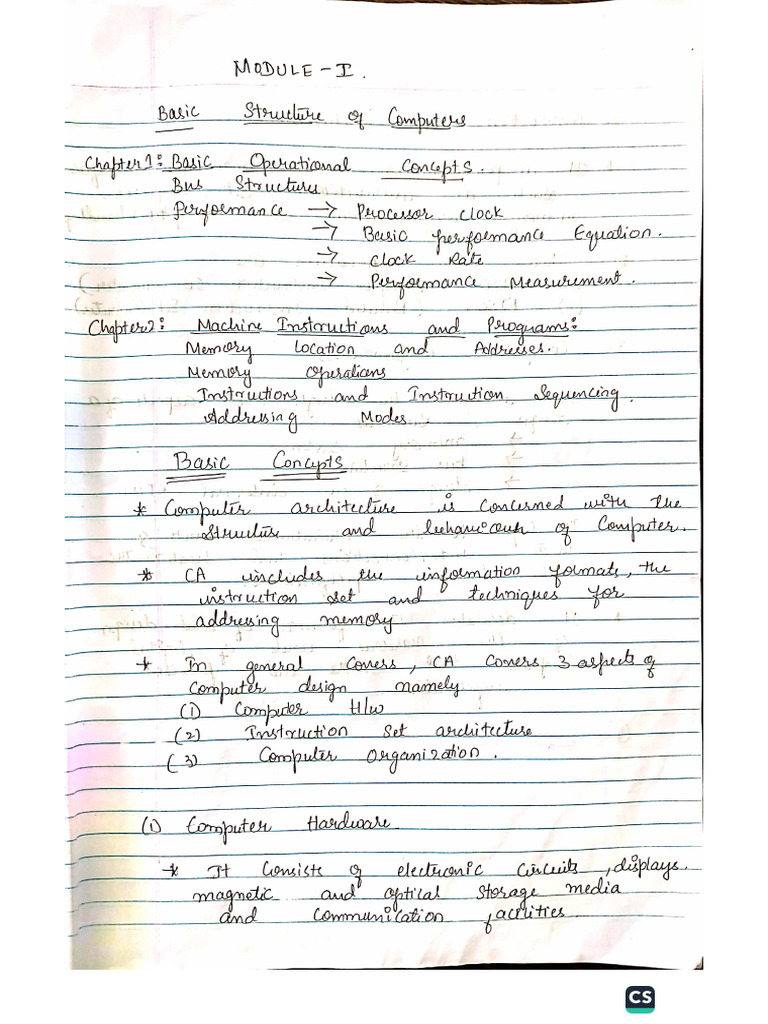 MODULE - I.
Basic Structure of Computers
Chapter 1: Basic Operational Concepts.
Bus Structures
Performance → Processor Clock
→ Basic performance Equation.
→ Clock Rate
→ Performance Measurement.
Chapter 2: Machine Instructions and Programs:
Memory Location and Addresses.
Memory Operations
Instructions and Instruction Sequencing.
Addressing Modes.
Basic Concepts
* Computer architecture is concerned with the
structure and behaviour of Computer.
* CA includes the information formats, the
instruction set and techniques for
addressing memory
* In general covers, CA covers 3 aspects of
Computer design namely
(1) Computer H/w
(2) Instruction Set architecture
(3) Computer Organization.
(1) Computer Hardware
* It consists of electronic circuits, displays.
magnetic and optical storage media
and communication facilities
CS